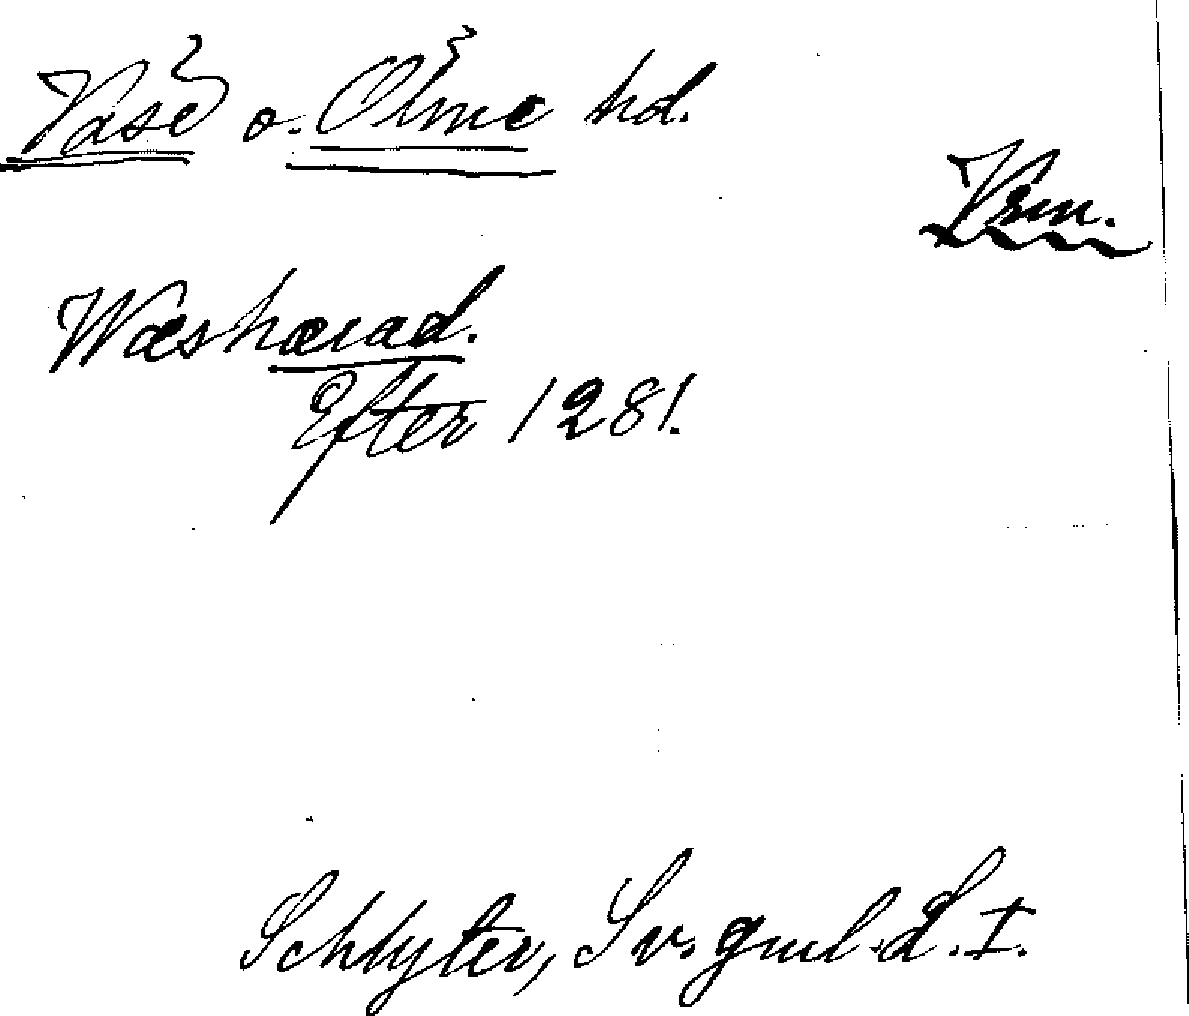 Väse o. Ölme hd.
Vrm.
Wæshærad.
Efter 1281.
Schlyter, Sv. gml. L. I.